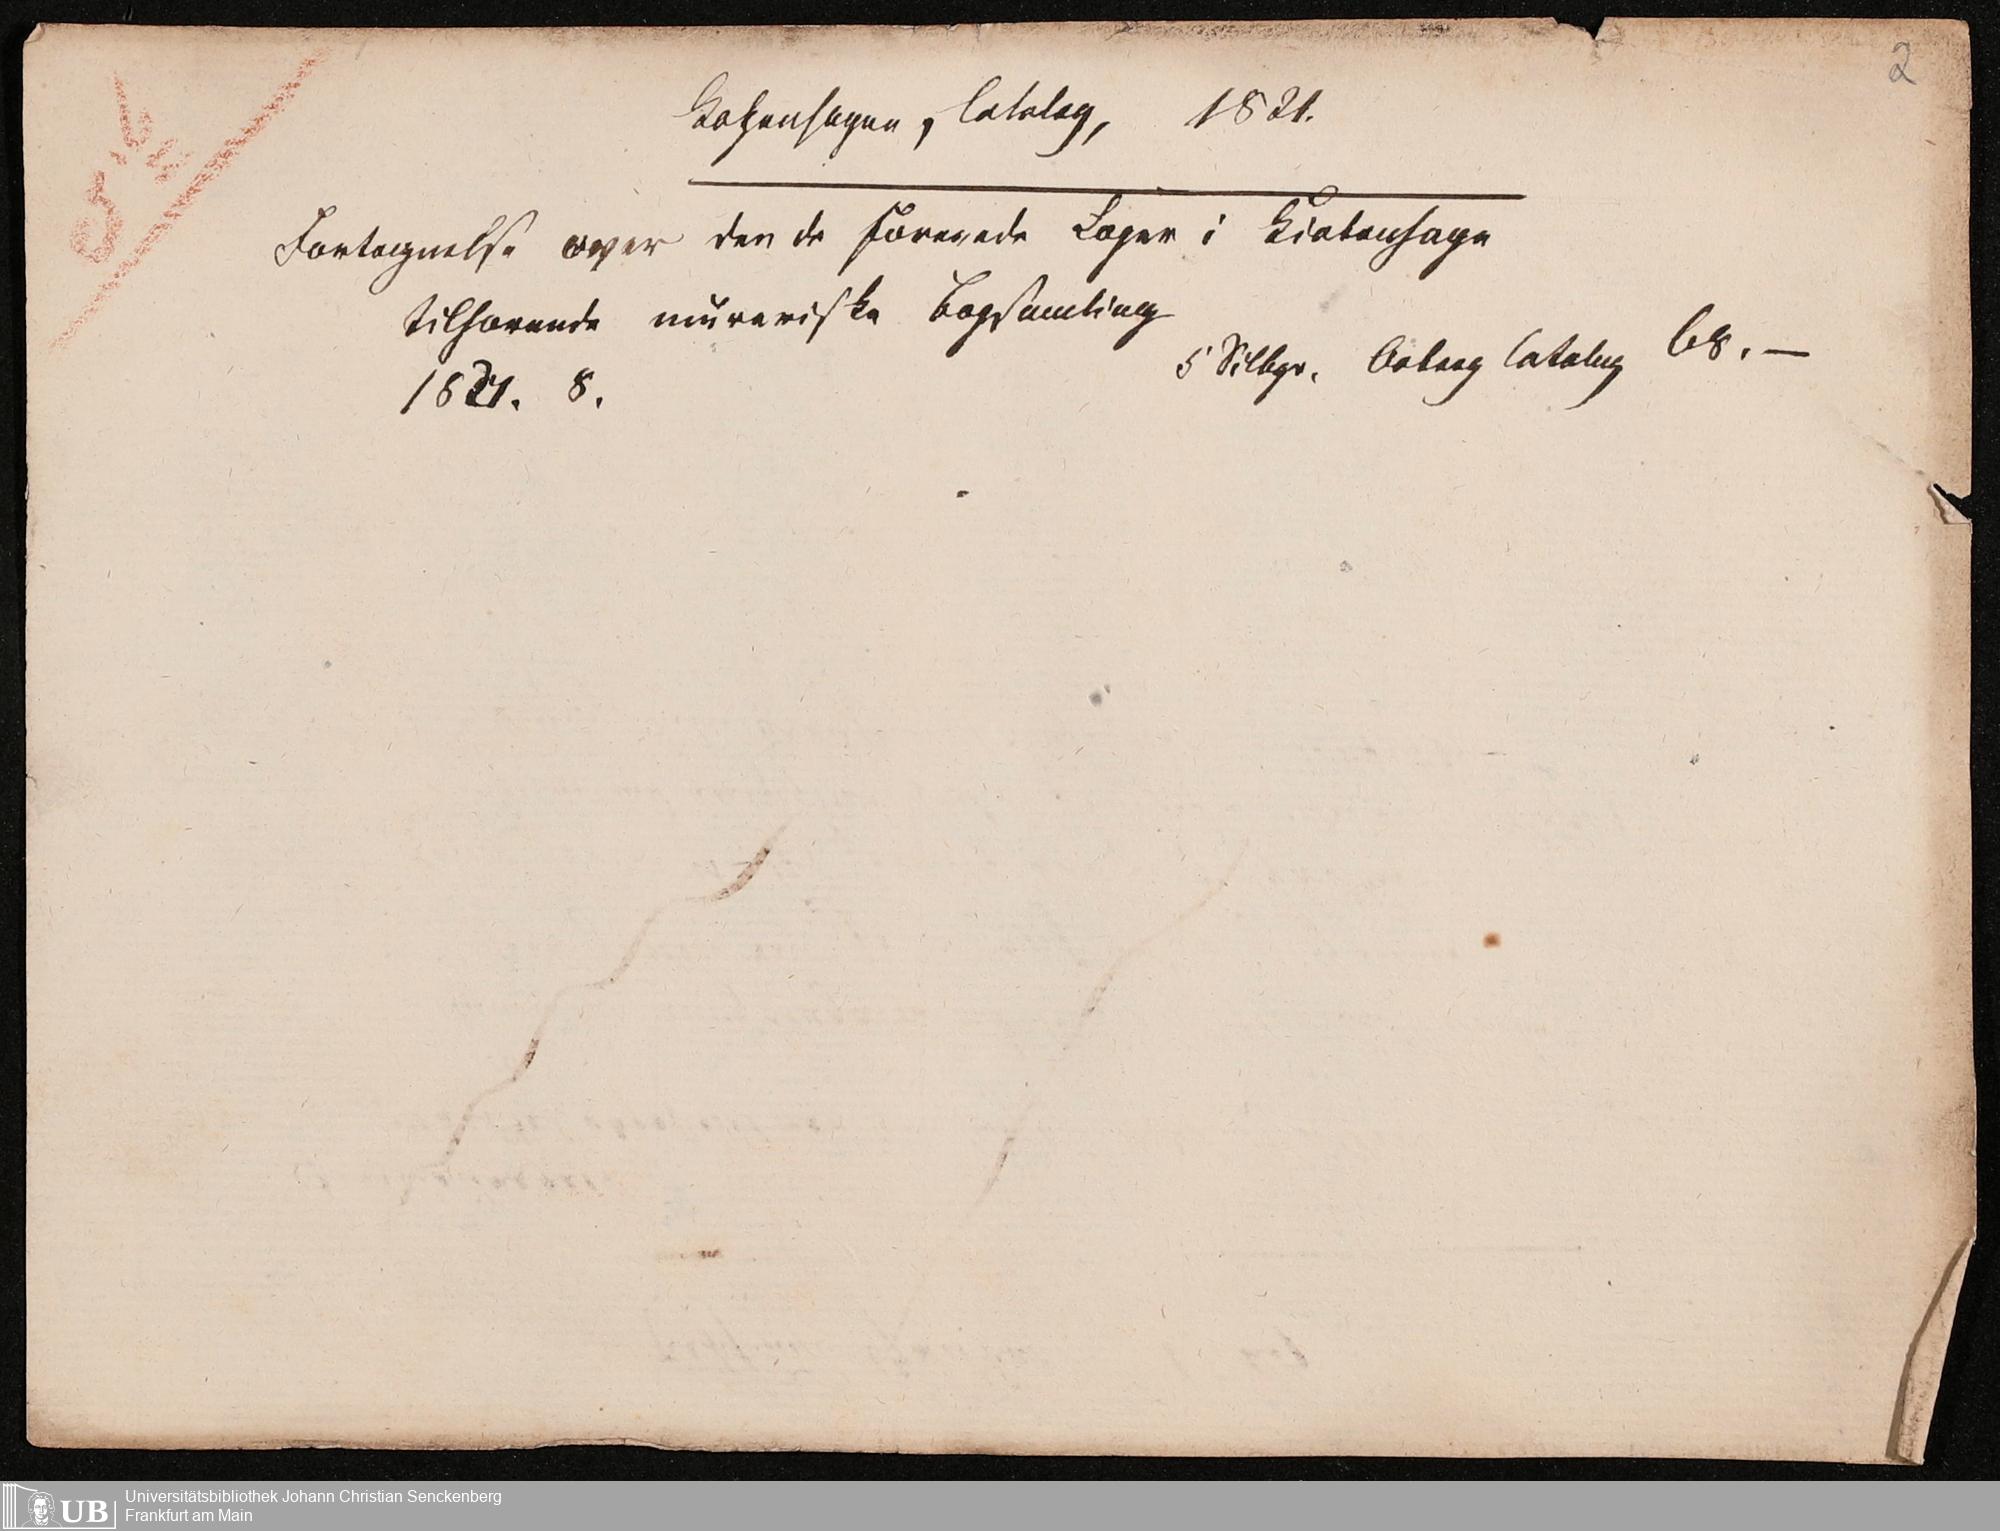 2
Kopenhagen, Catalog, 1821.
Fortegnelse over den de forenede Loger i Kiobenhagn
tilhorende mureriske Bogsamling
1821. 8.
5 Silbgr. Catalog 68. —
UB
Universitätsbibliothek Johann Christian Senckenberg
Frankfurt am Main